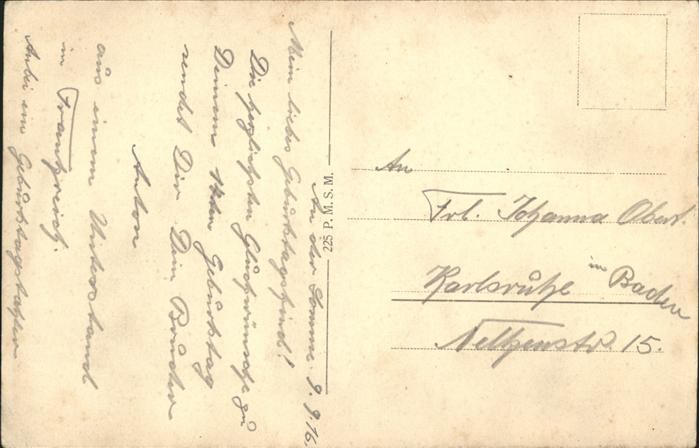 An der Somme. 9. 9. 16.
Mein liebes Geburtstagskind!
Die herzlichsten Glückwünsche zu
Deinem 14ten Geburtstag
sendet Dir Dein Bruder
Anton
aus einem Unterstand
in Frankreich.
Anbei ein Geburtstagskarten
225 P. M. S. M.
An
Frl. Johanna Oberl.
Karlsruhe in Baden
Nelkenstr. 15.